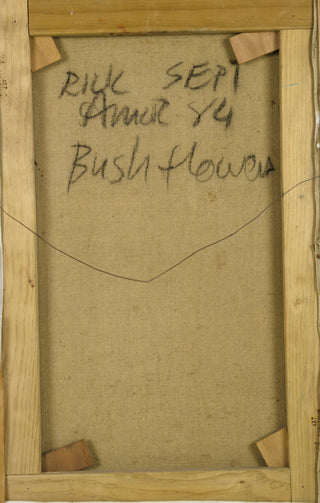 RICK SEPT
Amor 84
Bush flowers